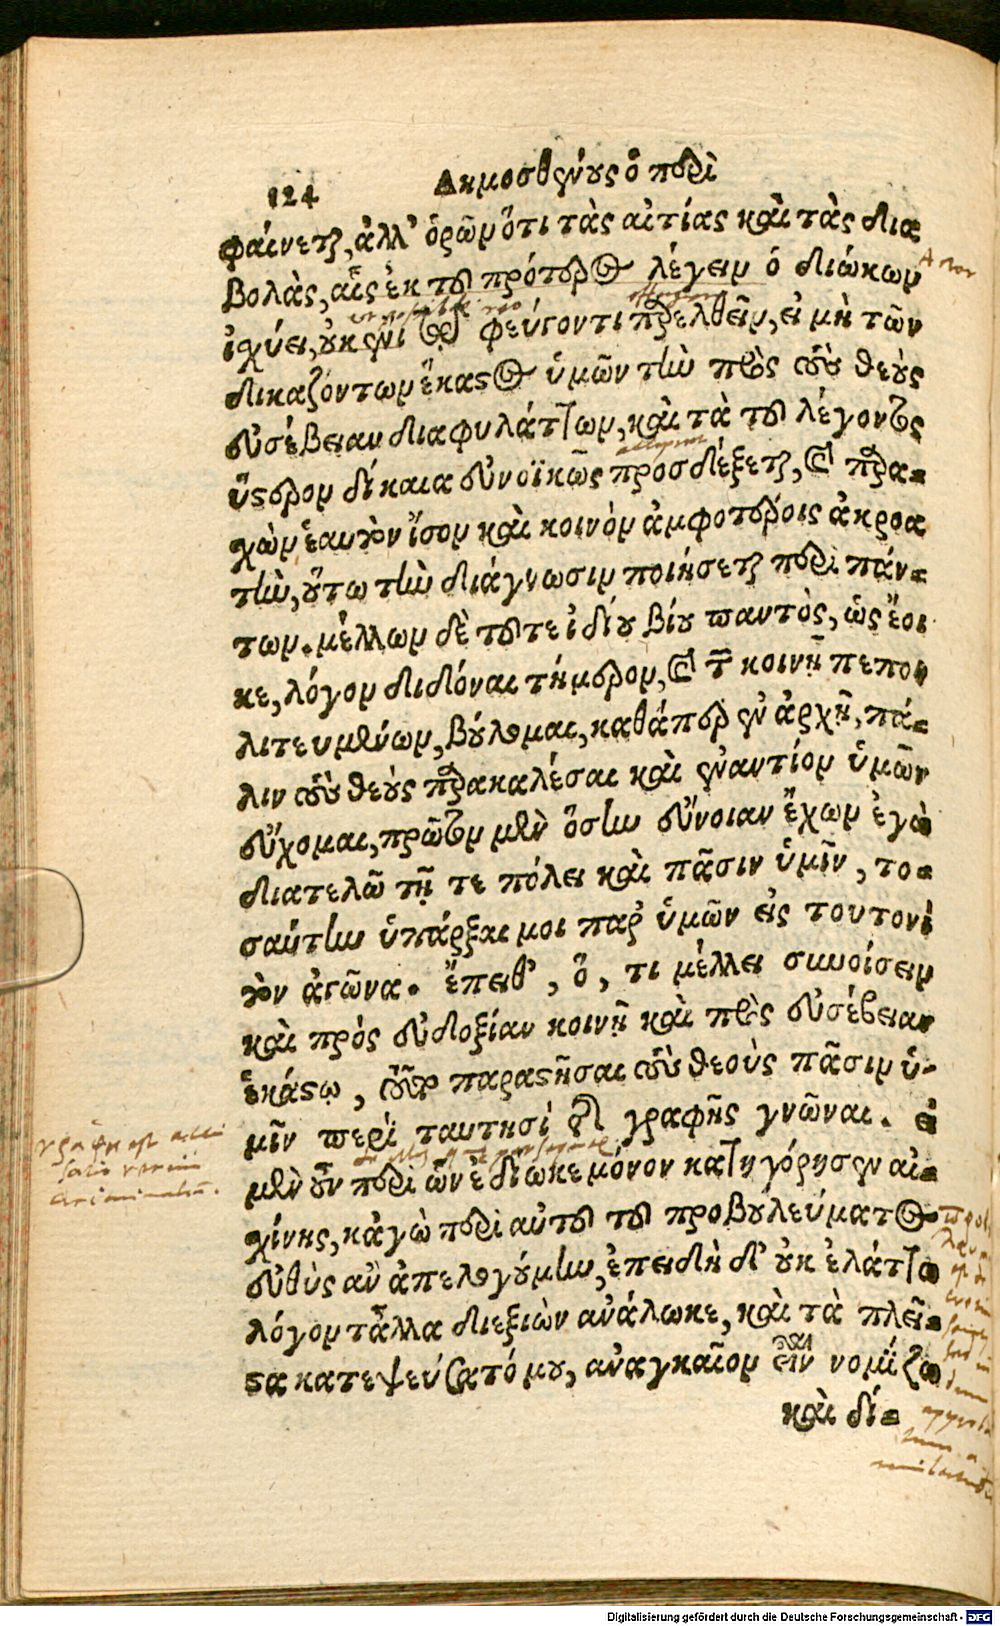 124 Δημοσθένους ὁ περὶ
φαίνεται, ἀλλ' ὁρῶν ὅτι τὰς αἰτίας καὶ τὰς δια
βολὰς, αἷς ἐκ τοῦ πρότερος λέγειν ὁ διώκων
ἰσχύει, οὐκ ἔνι τῷ φεύγοντι παρελθεῖν, εἰ μὴ τῶν
δικαζόντων ἕκαστος ὑμῶν τὴν πρὸς τοὺς θεοὺς
εὐσέβειαν διαφυλάττων, καὶ τὰ τοῦ λέγοντος
ὕστερον δίκαια εὐνοϊκῶς προσδέξεται, καὶ παρα-
χὼν ἑαυτὸν ἴσον καὶ κοινὸν ἀμφοτέροις ἀκροα
τὴν, οὕτω τὴν διάγνωσιν ποιήσεται περὶ πάν-
των. μέλλων δὲ τοῦ τε ἰδίου βίου παντὸς, ὡς ἔοι
κε, λόγον διδόναι τήμερον, καὶ τῶν κοινῇ πεπο-
λιτευμένων, βούλομαι, καθάπερ ἐν ἀρχῇ, πά-
λιν τοὺς θεοὺς παρακαλέσαι καὶ ἐναντίον ὑμῶν
εὔχομαι, πρῶτον μὲν ὅσην εὔνοιαν ἔχων ἐγὼ
διατελῶ τῇ τε πόλει καὶ πᾶσιν ὑμῖν, το-
σαύτην ὑπάρξαι μοι παρ' ὑμῶν εἰς τουτονὶ
τὸν ἀγῶνα. ἔπειθ', ὅ, τι μέλλει συνοίσειν
καὶ πρὸς εὐδοξίαν κοινῇ καὶ πρὸς εὐσέβειαν
ἑκάστῳ, τοῦτο παραστῆσαι τοὺς θεοὺς πᾶσιν ὑ-
μῖν περὶ ταυτησὶ τῆς γραφῆς γνῶναι. εἰ
μὲν οὖν περὶ ὧν ἐδίωκε μόνον κατηγόρησεν αἰ-
χίνης, κἀγὼ περὶ αὐτοῦ τοῦ προβουλεύματος
εὐθὺς ἂν ἀπελογούμην, ἐπειδὴ δ' οὐκ ἐλάττω
λόγον τἆλλα διεξιὼν ἀνάλωκε, καὶ τὰ πλεῖ-
στα κατεψεύσατό μου, ἀναγκαῖον εἶναι νομίζω
καὶ δί-
Digitalisierung gefördert durch die Deutsche Forschungsgemeinschaft - DFG